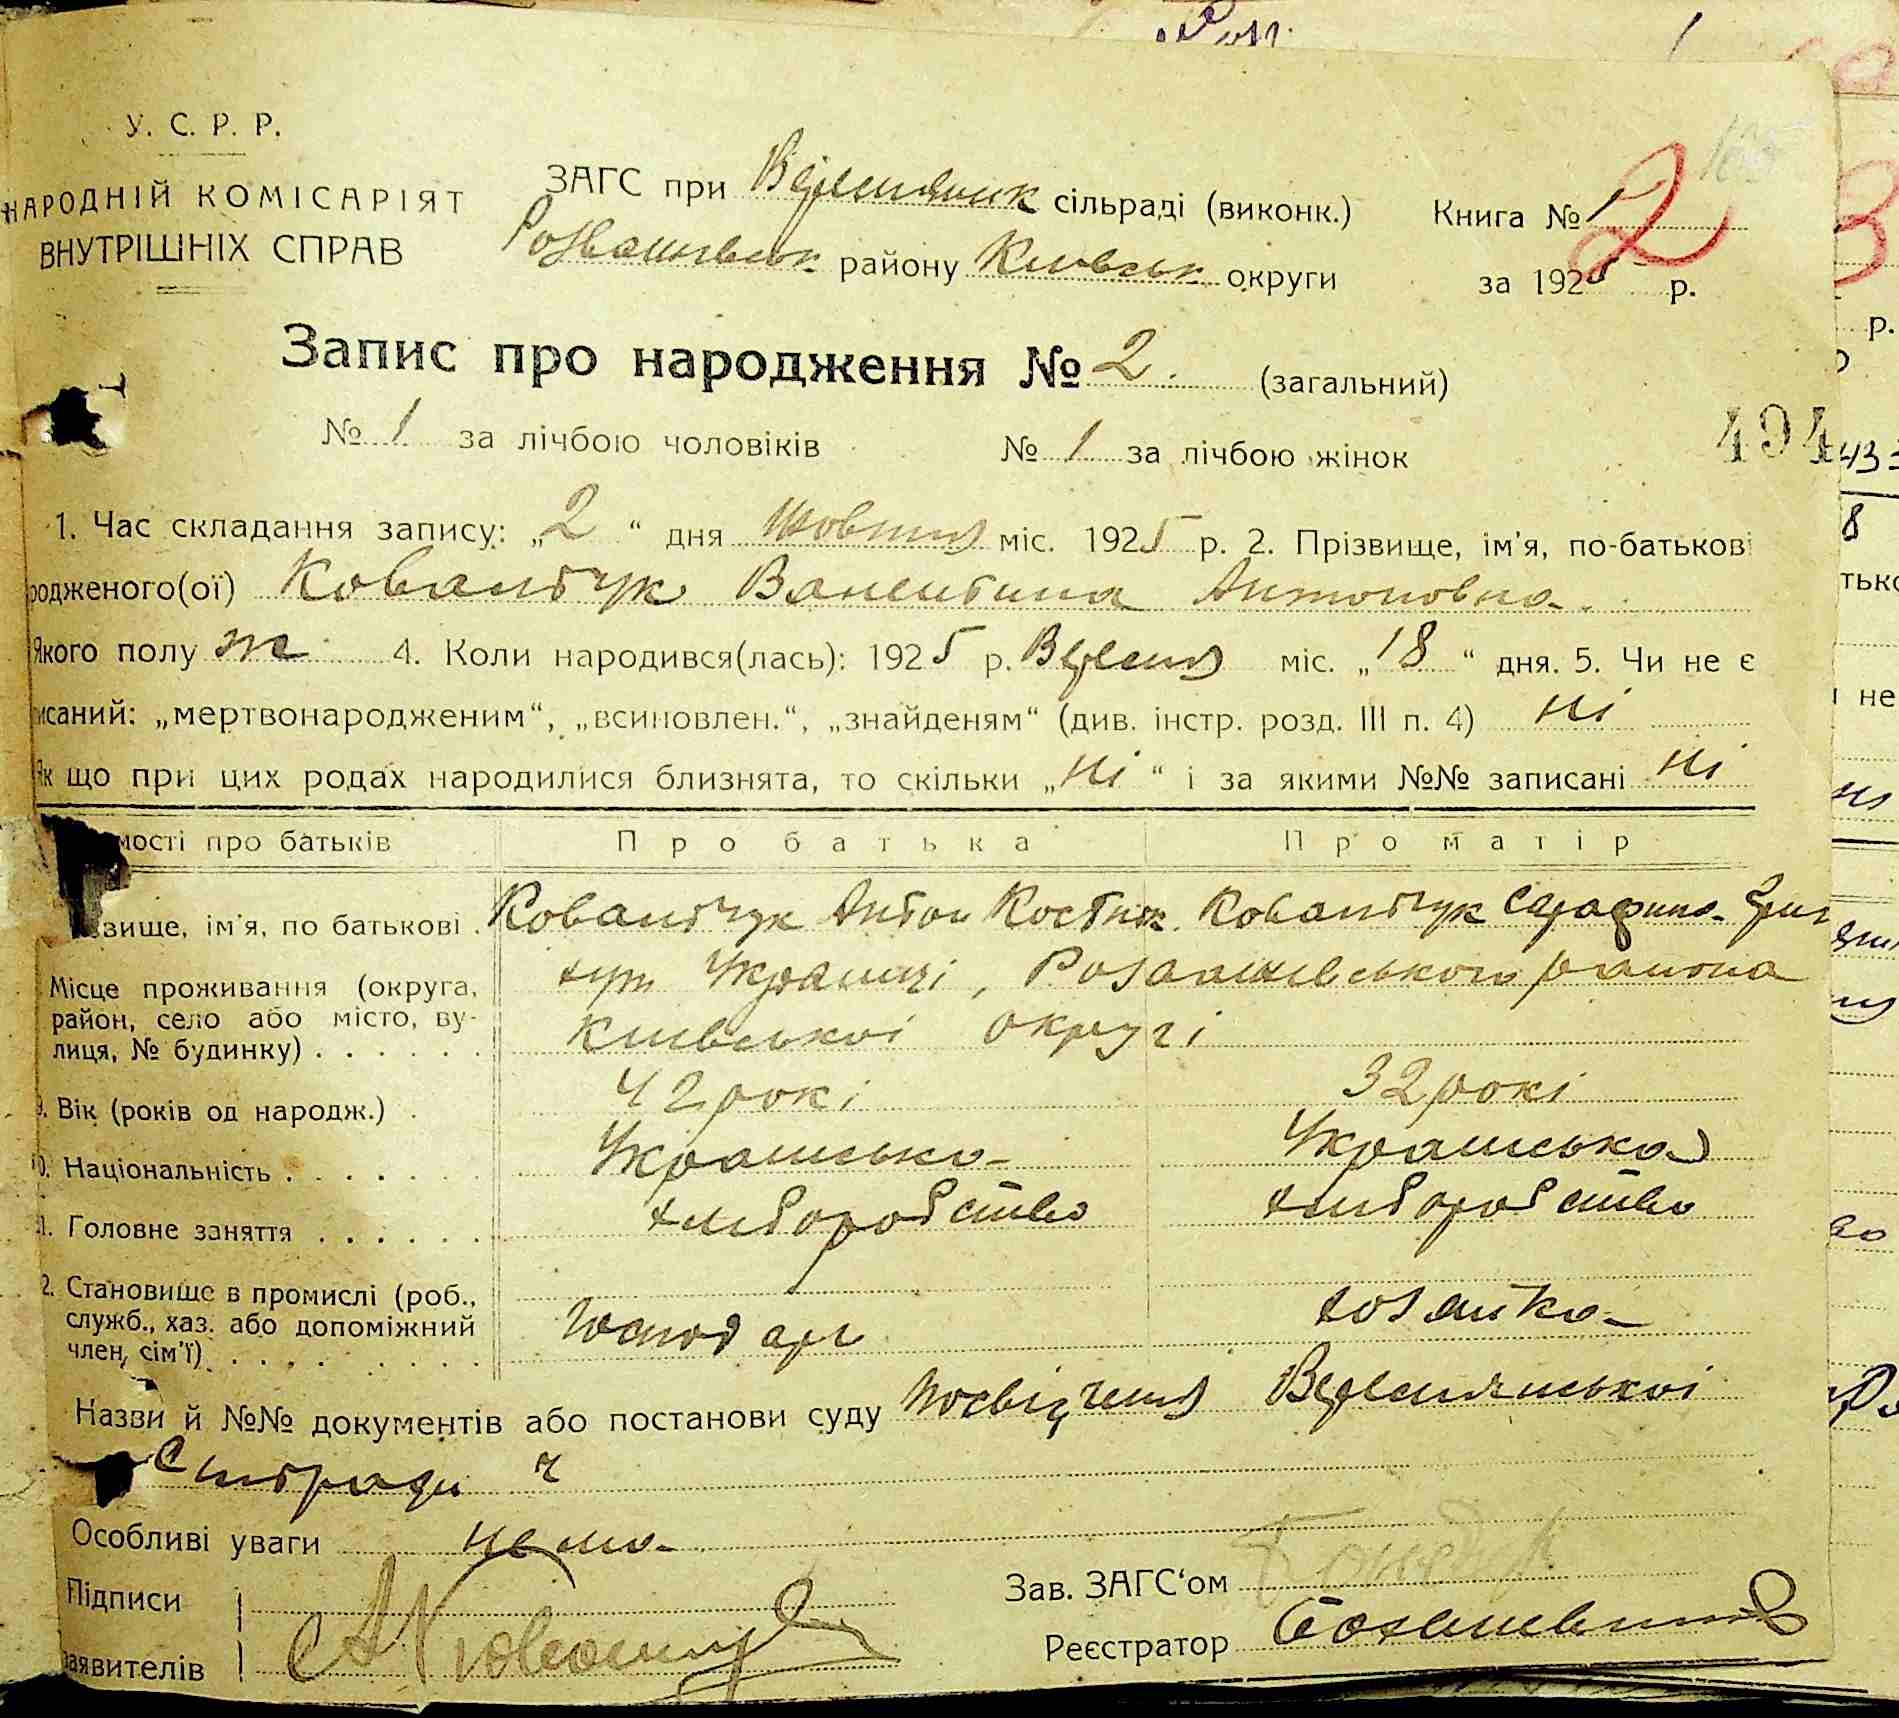 У. С. Р. Р.
НАРОДНІЙ КОМІСАРІЯТ
ВНУТРІШНІХ СПРАВ
ЗАГС при сільраді (виконк.)
району Київськ округи
Книга № 1
2
за 1925 р.
Запис про народження № 2. (загальний)
№ 1 за лічбою чоловіків № 1 за лічбою жінок
494
1. Час складання запису: „2“ дня Жовтня міс. 1925 р. 2. Прізвище, ім'я, по-батькові
родженого(ої) Ковальчук Валентина Антоновна
Якого полу ж 4. Коли народився(лась): 1925 р. Вересня міс. „18“ дня. 5. Чи не є
исаний: „мертвонародженим“, „всиновлен.“, „знайденям“ (див. інстр. розд. III п. 4) ні
Як що при цих родах народилися близнята, то скільки „ні“ і за якими №№ записані ні
мості про батьків Про батька Про матір
звище, ім'я, по батькові Ковальчук Антон Костян. Ковальчук Сарафина Григ
Місце проживання (округа, район, село або місто, вулиця, № будинку) хут Україчі, Розважівського району
Київської округі
9. Вік (років од народж.) 42 рокі 32 рокі
10. Національність Українська Українська
11. Головне заняття хліборобство хліборобство
2. Становище в промислі (роб., служб., хаз. або допоміжний член, сім'ї) Господарь хозяйка
Назви й №№ документів або постанови суду посвідченя
Сільради
Особливі уваги нема
Підписи
заявителів
Зав. ЗАГС'ом
Реєстратор